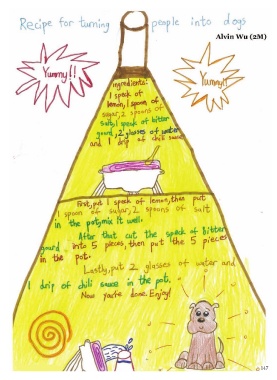 Recipe for turning people into dogs
Alvin Wu (2M)
Yummy!!
Yummy!!
ingredients:
1 speck of
lemon, 1 spoon of
sugar, 2 spoons of
salt, 1 speck of bitter
gourd, 2 glasses of water
and 1 drip of chili sauce
First, put 1 speck of lemon, then put
1 spoon of sugar, 2 spoons of salt
in the pot, mix it well.
After that cut the speck of bitter
gourd into 5 pieces, then put the 5 pieces
in the pot.
Lastly, put 2 glasses of water and
1 drip of chili sauce in the pot.
Now you're done. Enjoy!